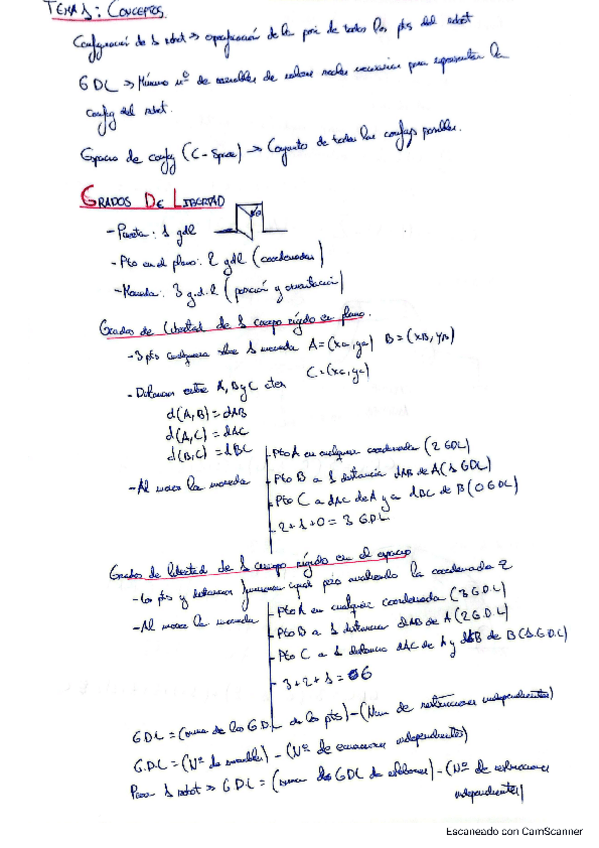 TEMA 1: CONCEPTOS.
Configuración de 1 robot => especificación de la posi de todos los pts del robot
GDL => Mínimo nº de variables de valores reales necesarias para representar la
config del robot.
Espacio de config (C-Space) -> Conjunto de todas las configs posibles.
GRADOS DE LIBERTAD
- Puerta: 1 gdl
- Pto en el plano: 2 gdl (coordenadas)
- Moneda: 3 g.d.l (posición y orientación)
Grados de libertad de 1 cuerpo rígido en plano.
- 3 pts cualquiera sobre 1 moneda A=(xa,ya) B=(xB,yB)
C=(xc,yc)
- Distancias entre A, B y C ctes
d(A,B)=dAB
d(A,C)=dAC
d(B,C)=dBC
- Al mover la moneda
- Pto A en cualquier coordenada (2 GDL)
- Pto B a 1 distancia dAB de A (1 GDL)
- Pto C a dAC de A y a dBC de B (0 GDL)
- 2+1+0=3 GDL
Grados de libertad de 1 cuerpo rígido en el espacio
- Los pts y distancias funcionan igual pero añadiendo la coordenada z
- Al mover la moneda
- Pto A en cualquier coordenada (3 G.D.L)
- Pto B a 1 distancia dAB de A (2 G.D.L)
- Pto C a 1 distancia dAC de A y dBC de B (1 G.D.L)
- 3+2+1=6
GDL=(suma de los G.D.L de los pts)-(Num de restricciones independientes)
G.D.L=(Nº de variables)-(Nº de ecuaciones independientes)
Para 1 robot => G.D.L=(suma GDL de eslabones)-(Nº de restricciones
independientes)
Escaneado con CamScanner